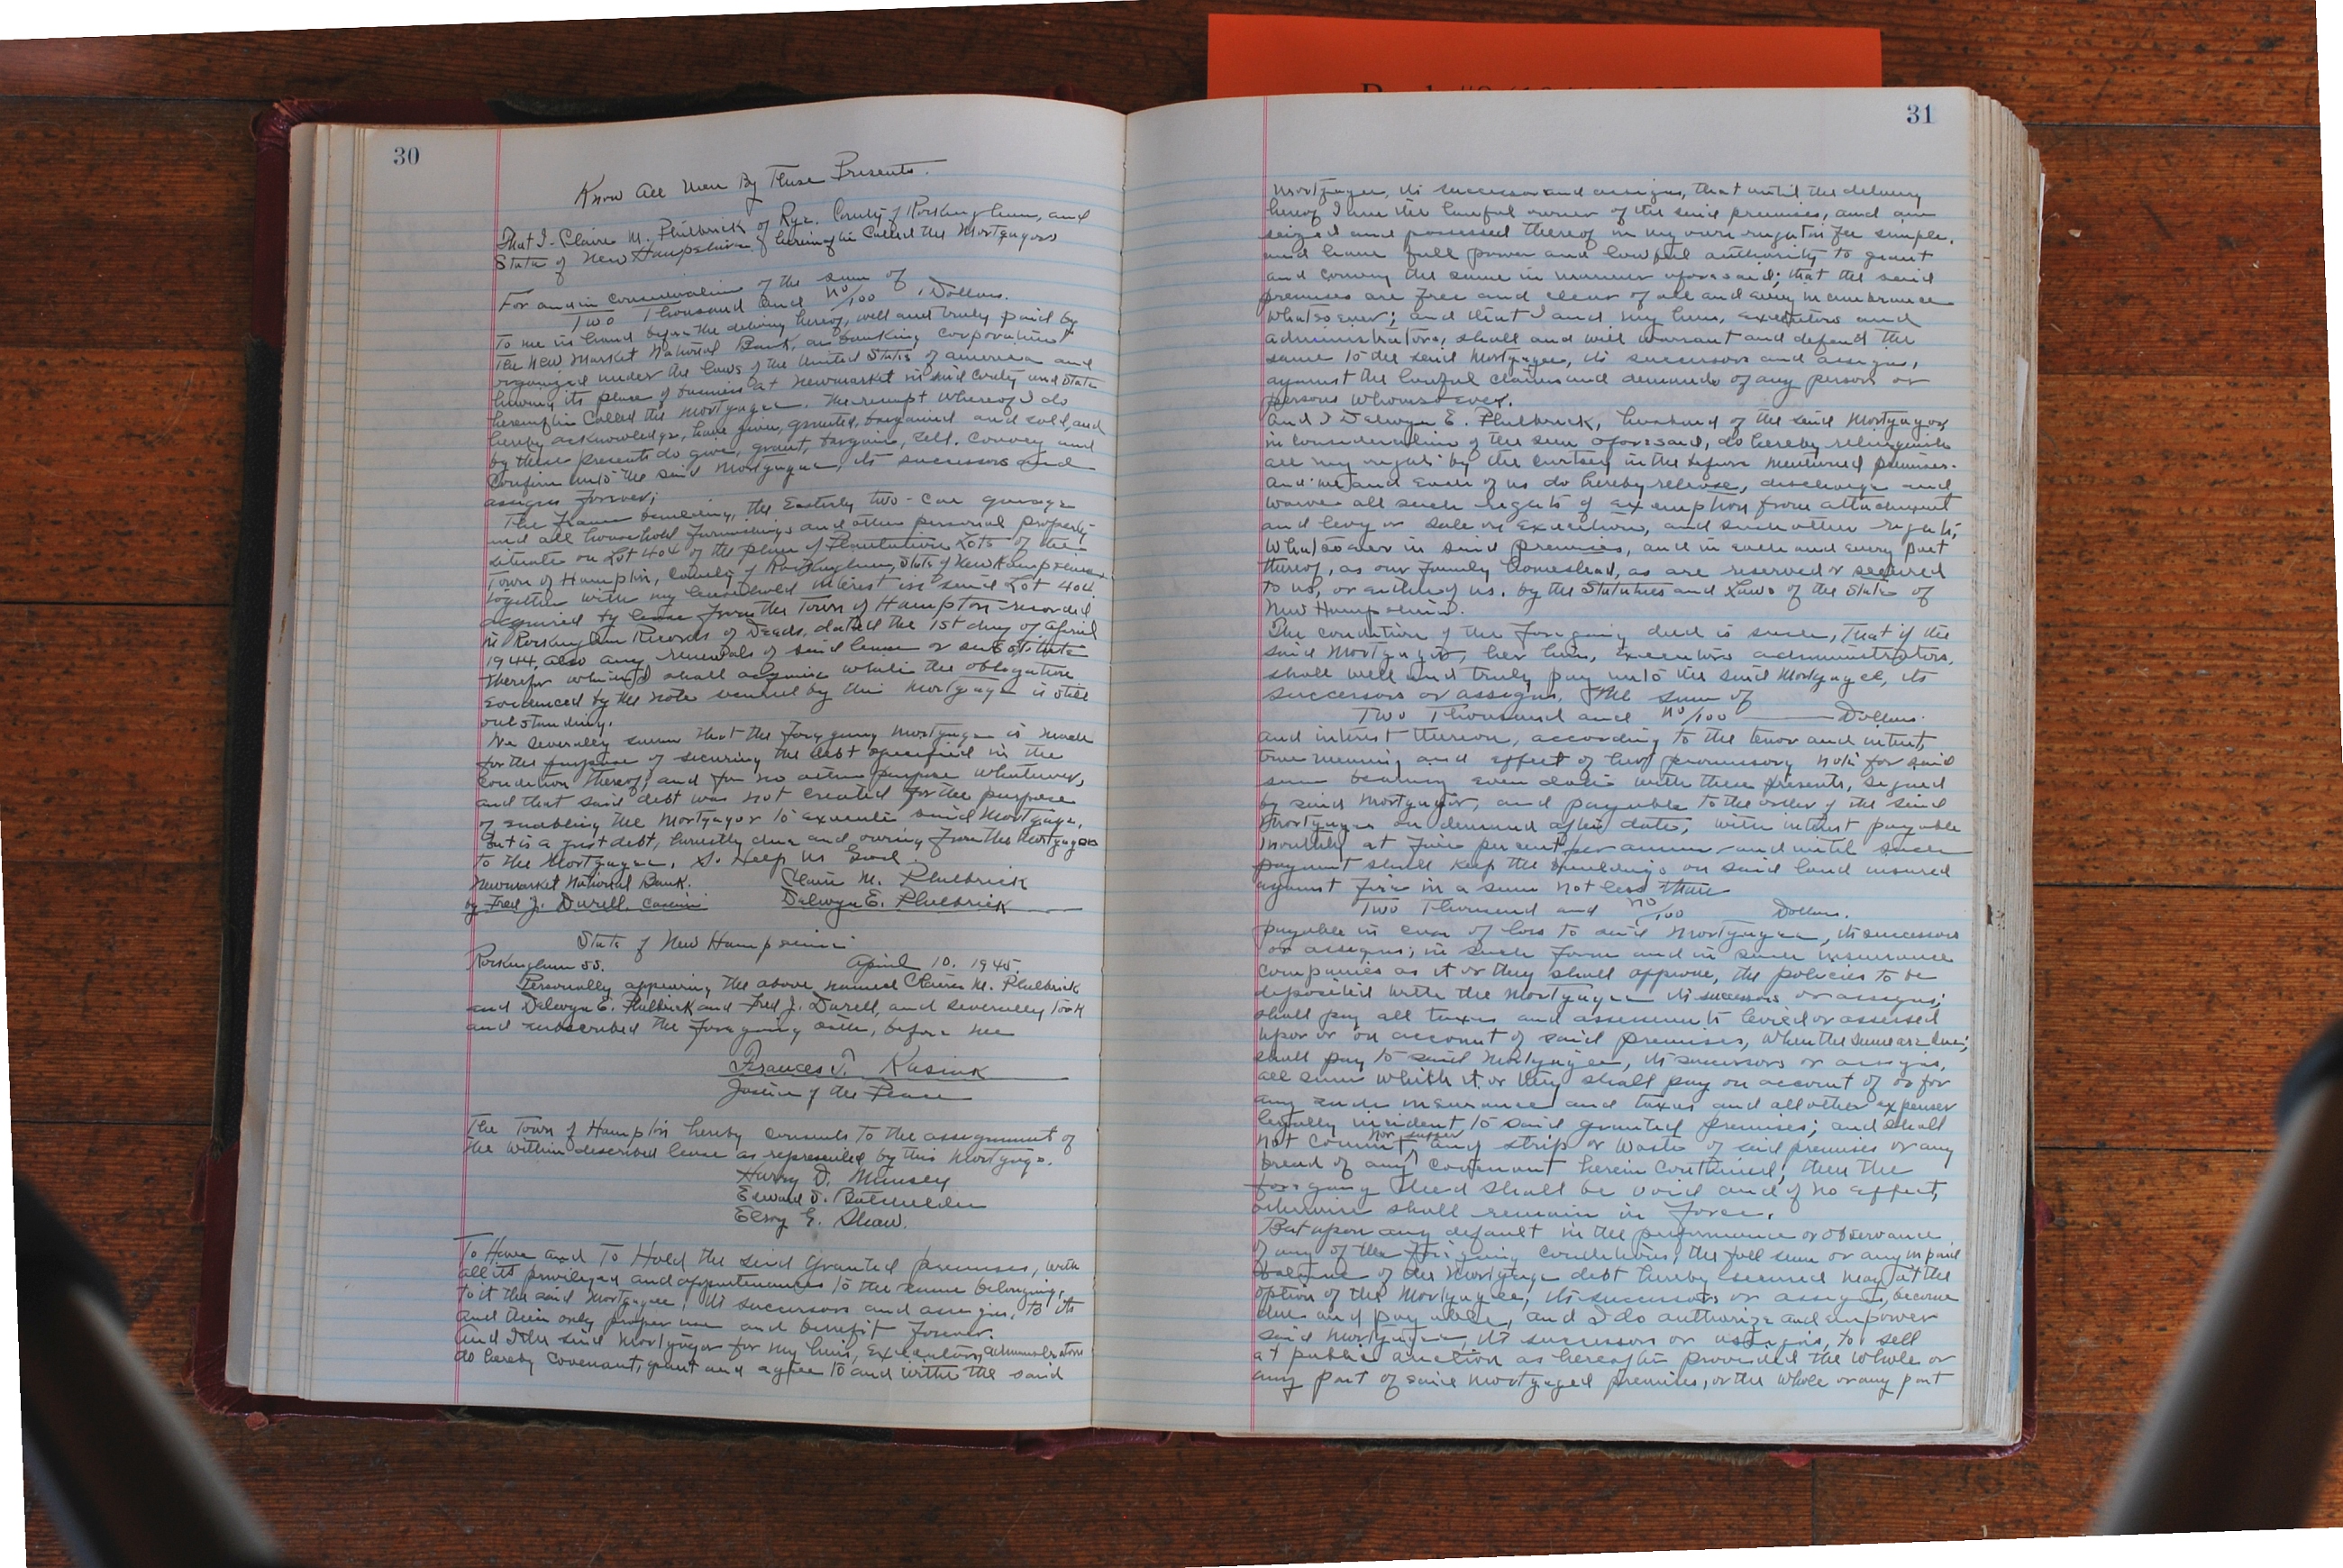 30
Know All Men By These Presents.
That I- Claire M. Philbrick of Rye. County of Rockingham, and
State of New Hampshire hereinafter Called the Mortgagor
For and in Consideration of the sum of
Two Thousand and no/100 Dollars.
To me in hand before the delivery hereof, well and truly paid by
The New Market National Bank, a banking corporation
organized under the laws of the United States of america and
having its place of business at Newmarket in said County and State
hereinafter Called the Mortgagee. The receipt Whereof I do
hereby acknowledge, have given, granted, bargained and sold, and
by these presents do give, grant, bargain, sell. Convey and
Confirm unto the said Mortgagee, its successors and
assigns forever;
The frame building, the Easterly two-car garage
and all household furnishings and other personal property
situate on Lot 404 of the plan of Plantation Lots of the
Town of Hampton, County of Rockingham, State of New Hampshire
together with my leasehold interest in said Lot 404.
acquired by lease from the Town of Hampton recorded
in Rockingham Records of Deeds, dated the 1st day of April
1944, also any renewals of said lease or substitute
therefor which I shall acquire while the obligation
evidenced by the note secured by this Mortgage is still
outstanding.
We severally swear that the foregoing Mortgage is made
for the purpose of securing the debt specified in the
Condition thereof, and for no other purpose whatever,
and that said debt was not created for the purpose
of enabling the Mortgagor to execute said Mortgage,
but is a just debt, honestly due and owing from the Mortgagor
to the Mortgagee. So Help us God
Newmarket National Bank. Claire M. Philbrick
by Fred J. Durell. Cashier Delwyn E. Philbrick
State of New Hampshire
Rockingham SS. April 10. 1945.
Personally appearing the above named Claire M. Philbrick
and Delwyn E. Philbrick and Fred J. Durell, and severally took
and subscribed the foregoing oath, before me
Frances T. Kasink
Justice of the Peace
The Town of Hampton hereby consents to the assignment of
the within described lease as represented by this Mortgage.
Harry D. Munsey
Edward S. Batchelder
Elroy G. Shaw.
To Have and To Hold the said granted premises, with
all its privileges and appurtenances to the same belonging,
to it the said Mortgagee, its successors and assigns, to its
and their only proper use and benefit forever.
And I the said Mortgagor for my heirs, executors, administrators
do hereby covenant, grant and agree to and with the said
31
Mortgagee, its successors and assigns, that until the delivery
hereof I am the lawful owner of the said premises, and am
seized and possessed thereof in my own right in fee simple.
and have full power and lawful authority to grant
and convey the same in manner aforesaid; that the said
premises are free and clear of all and every incumbrance
whatsoever; and that I and my heirs, executors and
administrators, shall and will warrant and defend the
same to the said Mortgagee, its successors and assigns,
against the lawful claims and demands of any person or
persons whomsoever.
And I Delwyn E. Philbrick, husband of the said Mortgagor
in consideration of the sum aforesaid, do hereby relinquish
all my rights by the curtesy in the before mentioned premises.
and we and each of us do hereby release, discharge and
waive all such rights of exemption from attachment
and levy or sale on execution, and such other rights,
whatsoever in said premises, and in each and every part
thereof, as our Family Homestead, as are reserved or secured
to us, or either of us. by the Statutes and Laws of the State of
New Hampshire.
The condition of the foregoing deed is such, That if the
said Mortgagor, her heirs, executors administrators,
shall well and truly pay unto the said Mortgagee, its
successors or assigns. The sum of
Two Thousand and no/100 Dollars.
and interest thereon, according to the tenor and intent,
true meaning and effect of her promissory note for said
sum bearing even date with these presents, signed
by said Mortgagor, and payable to the order of the said
Mortgagee on demand after date, with interest payable
monthly at five percent per annum and until such
payment shall keep the buildings on said land insured
against fire in a sum not less than
Two Thousand and no/100 Dollars.
payable in case of loss to said Mortgagee, its successors
or assigns; in such form and in such insurance
companies as it or they shall approve, the policies to be
deposited with the Mortgagee its successors or assigns;
shall pay all taxes and assessments levied or assessed
upon or on account of said premises, when the same are due;
shall pay to said Mortgagee, its successors or assigns,
all sums which it or they shall pay on account of or for
any such insurance and taxes and all other expenses
lawfully incident, to said granted premises; and shall
not commit nor suffer any strip or waste of said premises or any
breach of any covenant herein contained; then the
foregoing deed shall be void and of no effect,
otherwise shall remain in force.
But upon any default in the performance or observance
of any of the foregoing conditions, the full sum or any unpaid
balance of the Mortgage debt hereby secured may at the
option of the Mortgagee, its successors or assigns, become
due and payable, and I do authorize and empower
said Mortgagee, its successors or assigns, to sell
at public auction as hereafter provided the whole or
any part of said mortgaged premises, or the whole or any part